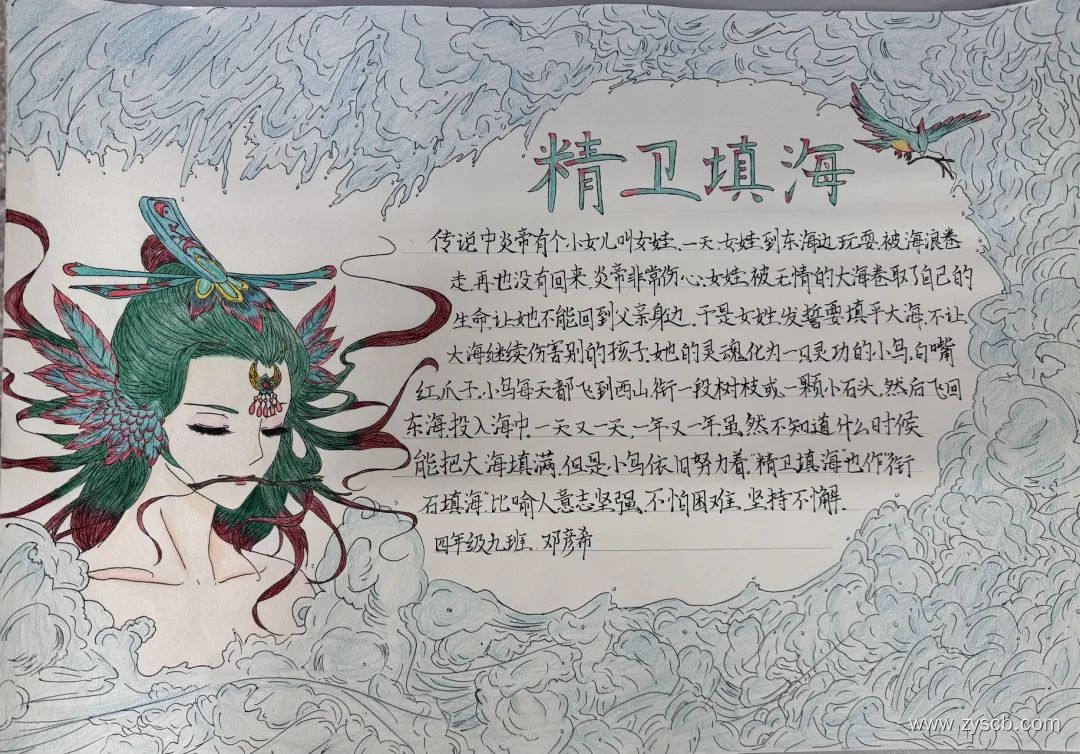 精卫填海
传说中炎帝有个小女儿叫女娃.一天女娃到东海边玩耍.被海浪卷
走.再也没有回来.炎帝非常伤心.女娃被无情的大海卷取了自己的
生命.让她不能回到父亲身边.于是女娃发誓要填平大海.不让
大海继续伤害别的孩子.她的灵魂化为一只灵功的小鸟.白嘴
红爪子.小鸟每天都飞到西山.衔一段树枝或一颗小石头.然后飞回
东海.投入海中.一天又一天.一年又一年.虽然不知道什么时候
能把大海填满.但是小鸟依旧努力着."精卫填海"也作"衔
石填海".比喻人意志坚强.不怕困难.坚持不懈.
四年级九班. 邓彦希
www.zyscb.com